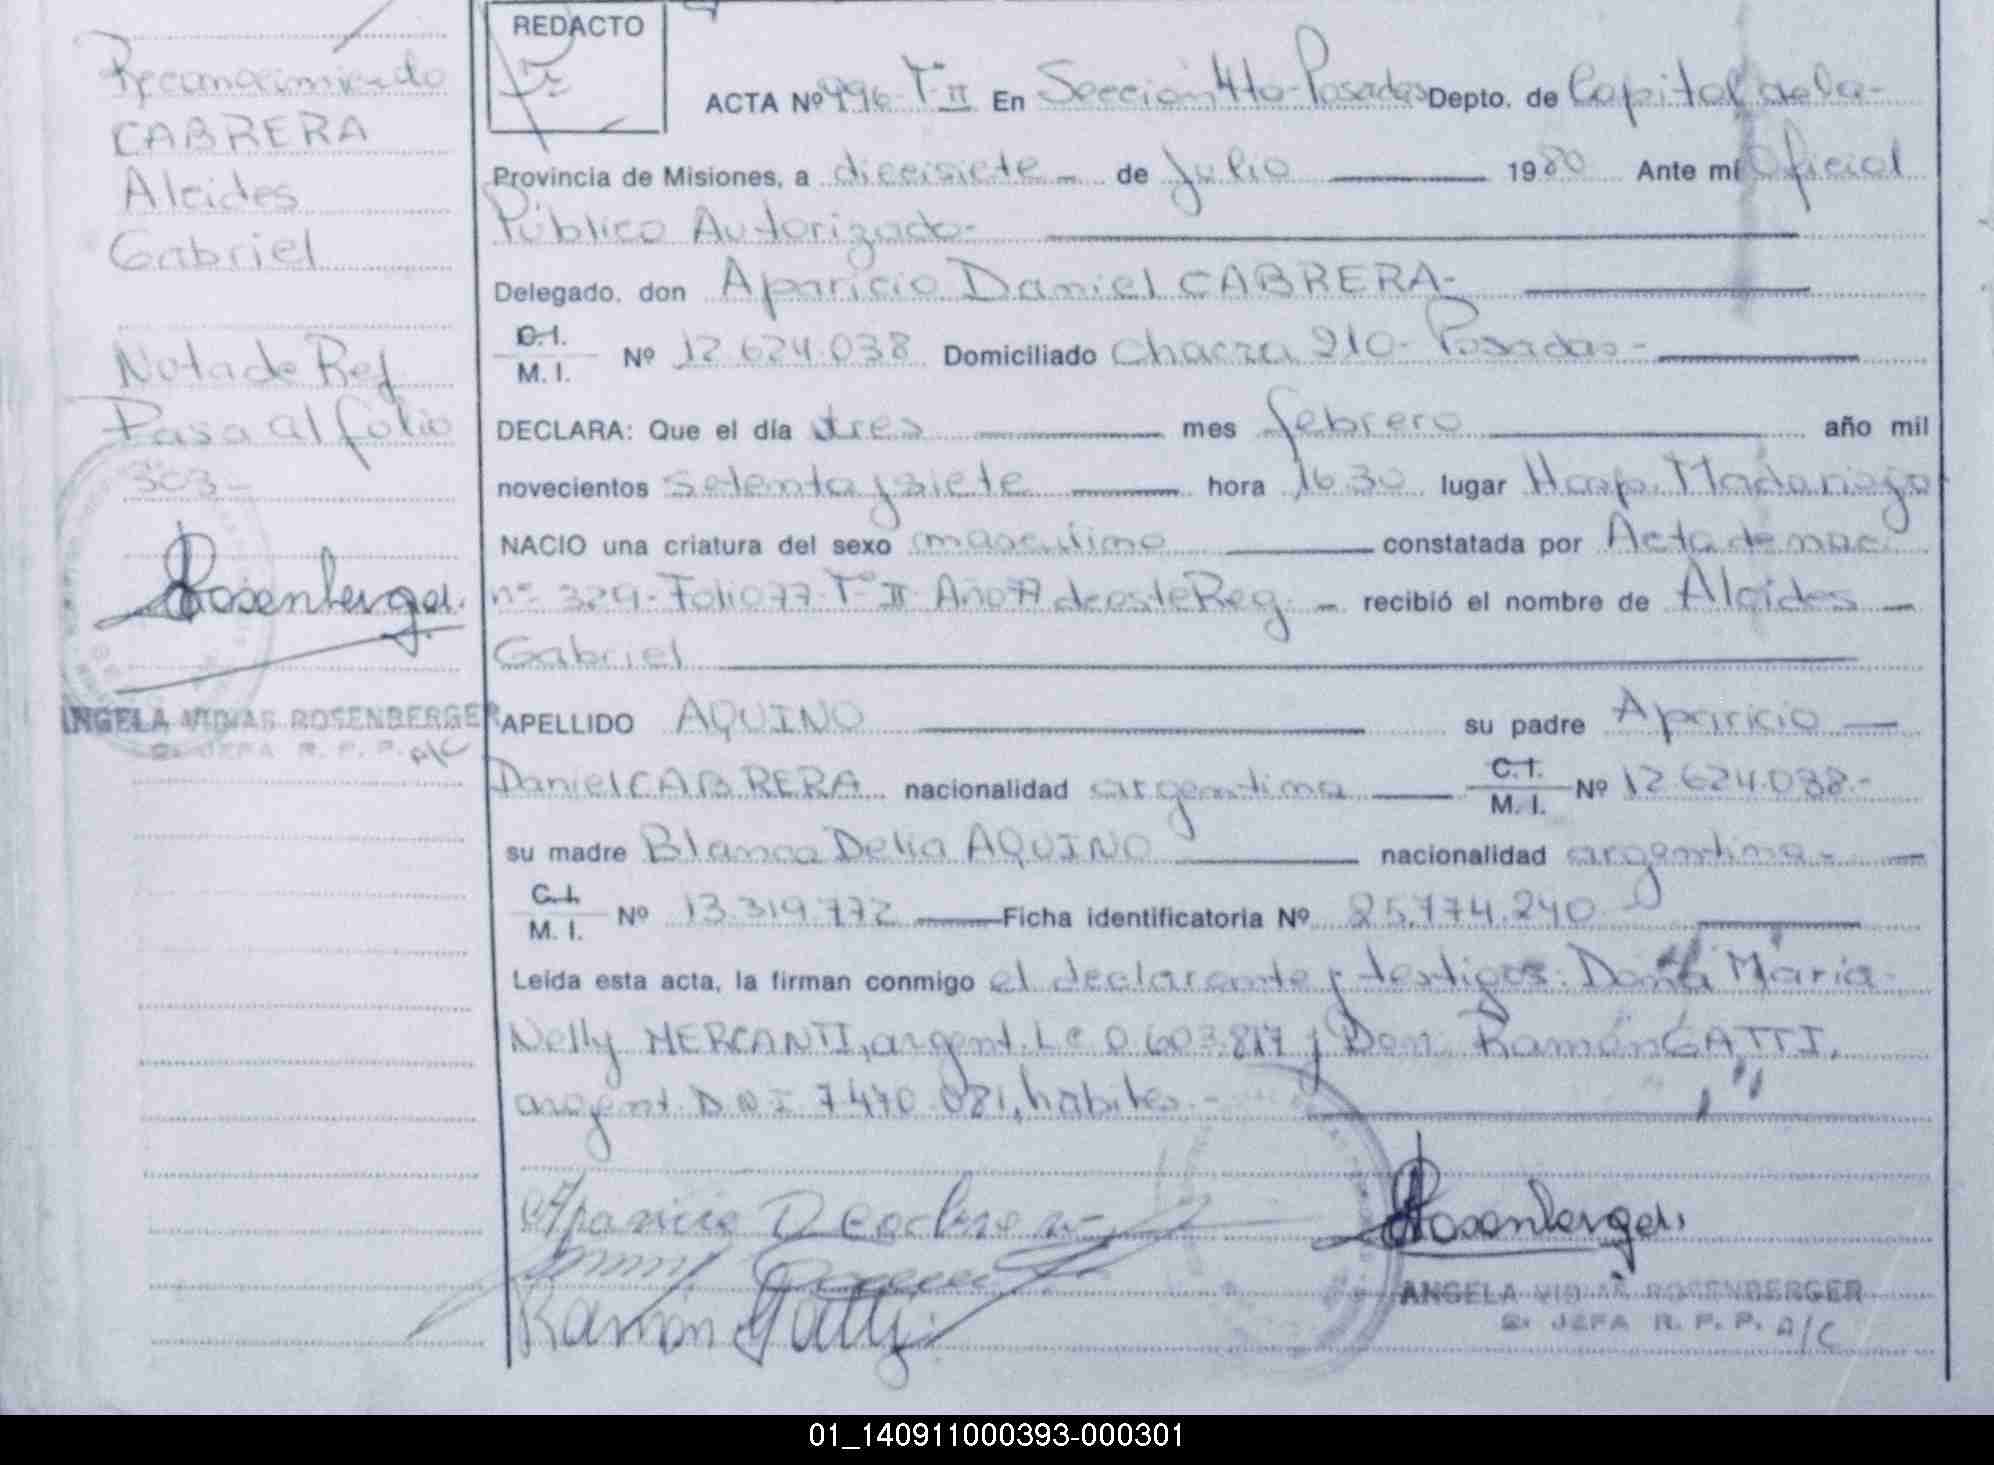 Reconocimiento
CABRERA
Alcides
Gabriel
Nota de Ref
Pasa al folio
303-
Rosenberger
ANGELA VIDIAS ROSENBERGER
JEFA R. P. P. A/C
REDACTO
ACTA Nº 996- Tº II En Sección 4to- Posadas Depto. de Capital de la-
Provincia de Misiones, a diecisiete - de Julio 1980 Ante mí Oficial
Público Autorizado-
Delegado, don Aparicio Daniel CABRERA-
C.I.
M. I. Nº 12.624.038 Domiciliado Chacra 210- Posadas-
DECLARA: Que el día tres mes febrero año mil
novecientos setenta y siete hora 16.30 lugar Hosp. Madariaga
NACIO una criatura del sexo masculino constatada por Acta de nac.
nº 329- Folio 77- Tº II- Año 77 de este Reg. - recibió el nombre de Alcides -
Gabriel
APELLIDO AQUINO su padre Aparicio
Daniel CABRERA nacionalidad argentina C.I.
M. I. Nº 12.624.038.-
su madre Blanca Delia AQUINO nacionalidad argentina-
C.I.
M. I. Nº 13.319.772 Ficha identificatoria Nº 25.774.240
Leída esta acta, la firman conmigo el declarante y testigos: Doña María
Nelly MERCANTI, argent. L C 0.603.817 y Don Ramón GATTI,
argent. D N I 7.470.081, hábiles.-
Aparicio D Cabrera
Ramón Gatti
Rosenberger
ANGELA VIDIAS ROSENBERGER
JEFA R. P. P. A/C
01_140911000393-000301